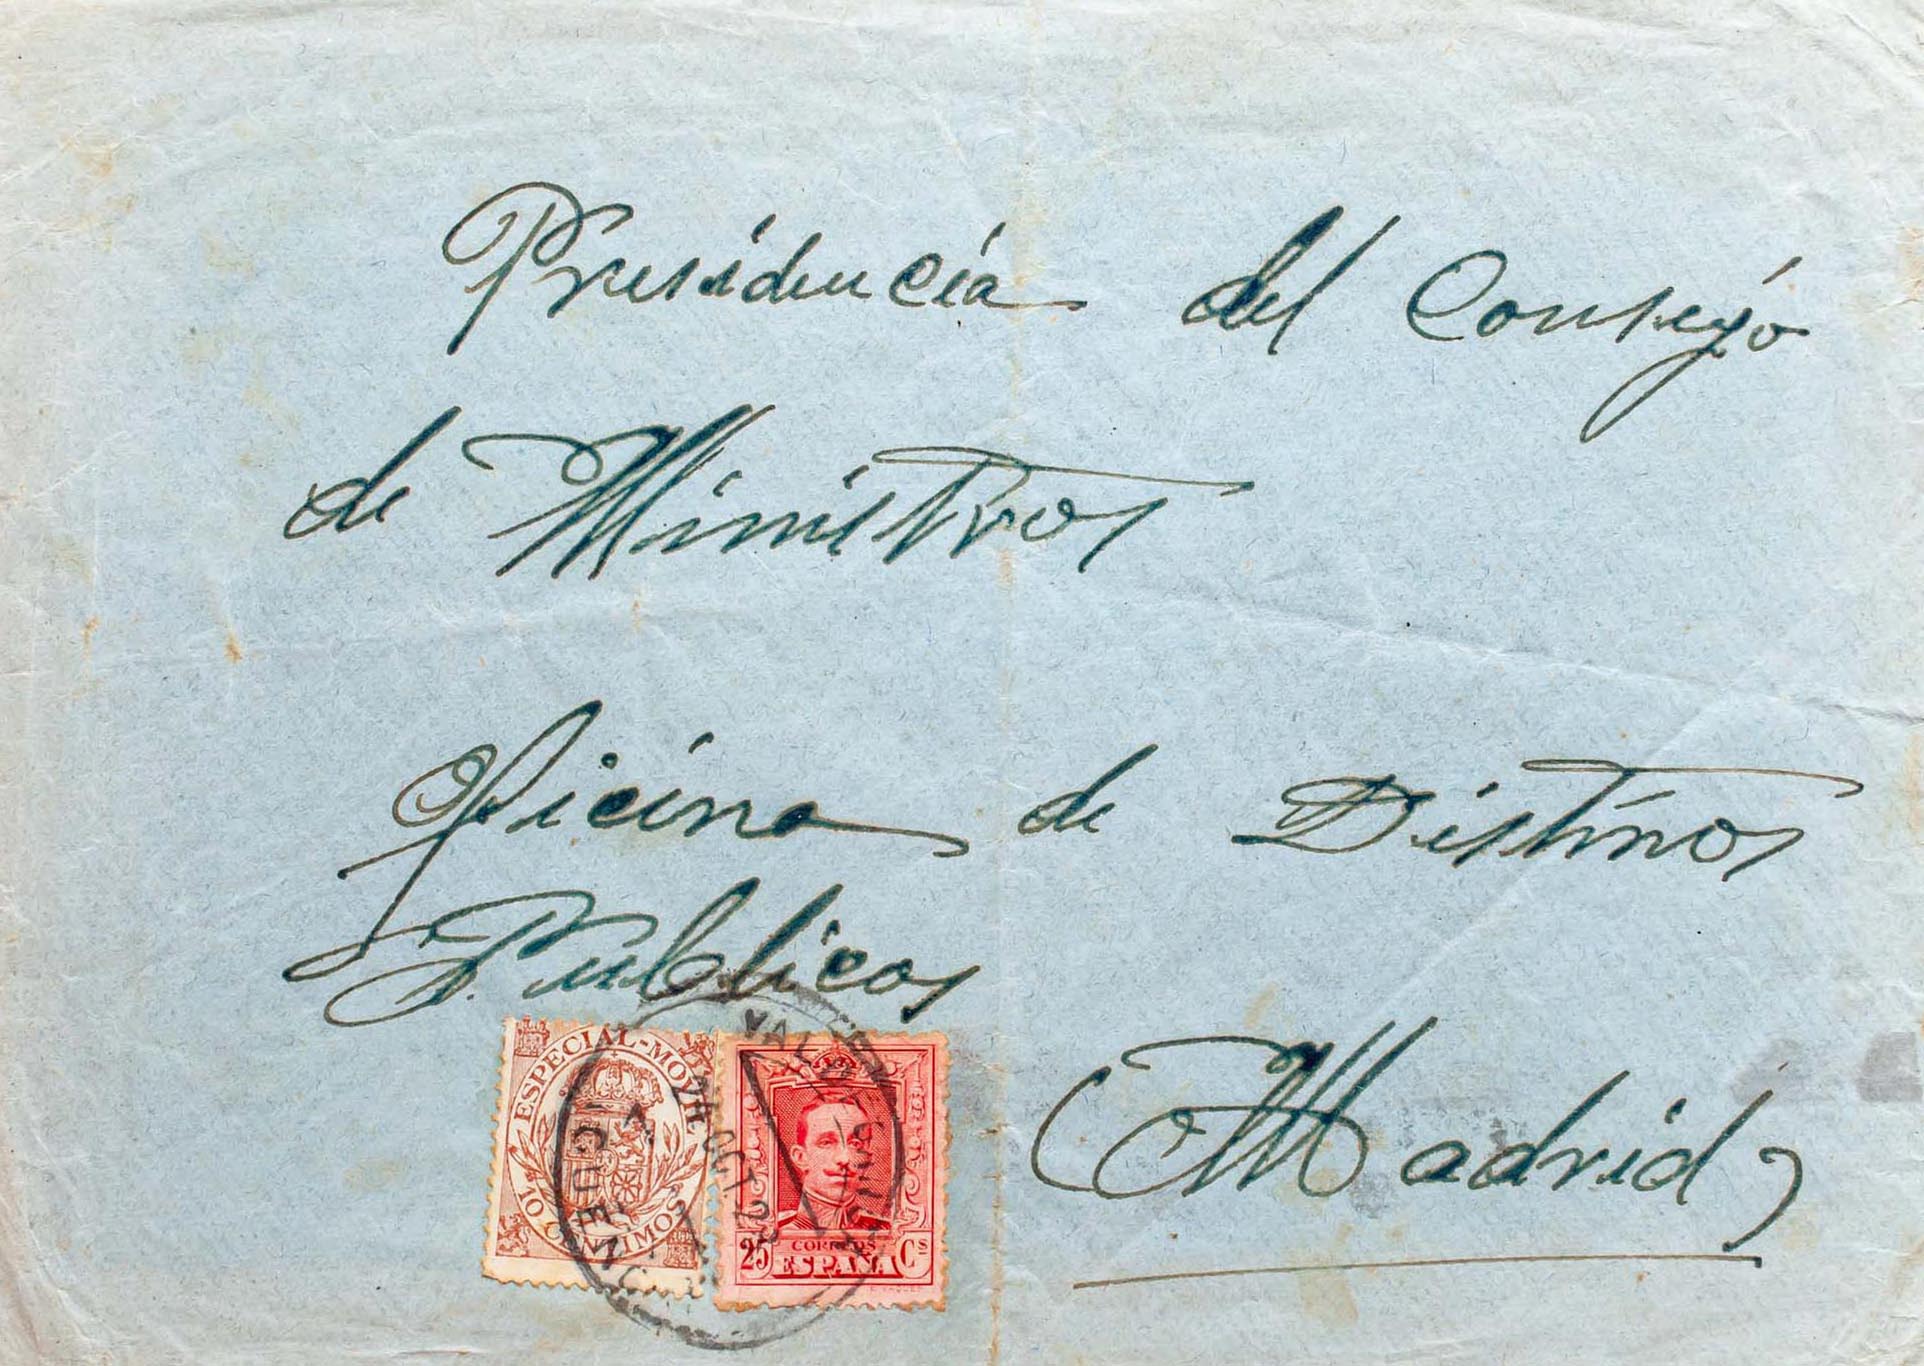 Presidencia del Consejo
de Ministros
Oficina de Distinos
Publicos
Madrid
ESPECIAL-MOVIL
10 CENTIMOS
CORREOS
25 ESPAÑA Cs
OCT. 2
CUENCA